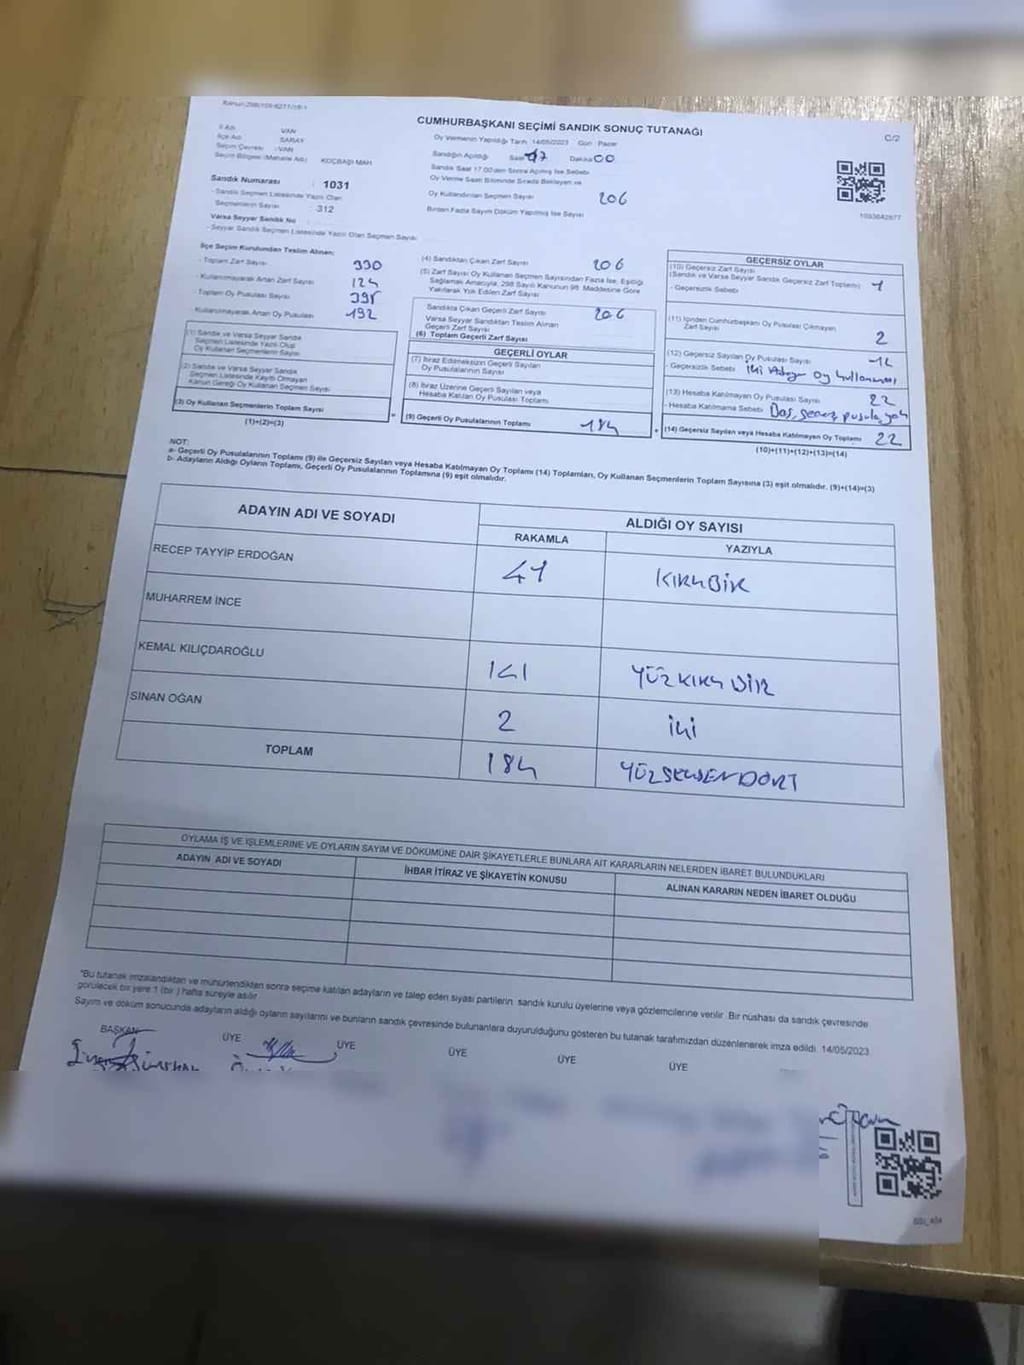 Kanun:298/105-6271/18/1
CUMHURBAŞKANI SEÇİMİ SANDIK SONUÇ TUTANAĞI
C/2
İl Adı : VAN
İlçe Adı : SARAY
Seçim Çevresi : VAN
Seçim Bölgesi (Mahalle Adı) : KOÇBAŞI MAH.
Sandık Numarası : 1031
- Sandık Seçmen Listesinde Yazılı Olan
Seçmenlerin Sayısı : 312
Varsa Seyyar Sandık No
- Seyyar Sandık Seçmen Listesinde Yazılı Olan Seçmen Sayısı
Oy Vermenin Yapıldığı Tarih : 14/05/2023 Gün : Pazar
Sandığın Açıldığı Saat 17 Dakika 00
Sandık Saat 17.00'den Sonra Açılmış İse Sebebi
Oy Verme Saati Bitiminde Sırada Bekleyen ve
Oy Kullandırılan Seçmen Sayısı 206
Birden Fazla Sayım Döküm Yapılmış İse Sayısı
İlçe Seçim Kurulundan Teslim Alınan;
- Toplam Zarf Sayısı 330
- Kullanılmayarak Artan Zarf Sayısı 124
- Toplam Oy Pusulası Sayısı
- Kullanılmayarak Artan Oy Pusulası 192
(1) Sandık ve Varsa Seyyar Sandık
Seçmen Listesinde Yazılı Olup
Oy Kullanan Seçmenlerin Sayısı
(2) Sandık ve Varsa Seyyar Sandık
Seçmen Listesinde Kayıtlı Olmayan
Kanun Gereği Oy Kullanan Seçmen Sayısı
(3) Oy Kullanan Seçmenlerin Toplam Sayısı
(1)+(2)=(3)
(4) Sandıktan Çıkan Zarf Sayısı 206
(5) Zarf Sayısı Oy Kullanan Seçmen Sayısından Fazla İse, Eşitliği
Sağlamak Amacıyla, 298 Sayılı Kanunun 98. Maddesine Göre
Yakılarak Yok Edilen Zarf Sayısı
Sandıkta Çıkan Geçerli Zarf Sayısı 206
Varsa Seyyar Sandıktan Teslim Alınan
Geçerli Zarf Sayısı
(6) Toplam Geçerli Zarf Sayısı
GEÇERLİ OYLAR
(7) İtiraz Edilmeksizin Geçerli Sayılan
Oy Pusulalarının Sayısı
(8) İtiraz Üzerine Geçerli Sayılan veya
Hesaba Katılan Oy Pusulası Toplamı
(9) Geçerli Oy Pusulalarının Toplamı 184
1093642877
GEÇERSİZ OYLAR
(10) Geçersiz Zarf Sayısı
(Sandık ve Varsa Seyyar Sandık Geçersiz Zarf Toplamı) 1
- Geçersizlik Sebebi
(11) İçinden Cumhurbaşkanı Oy Pusulası Çıkmayan
Zarf Sayısı 2
(12) Geçersiz Sayılan Oy Pusulası Sayısı
- Geçersizlik Sebebi iki Adaya oy kullanması
(13) Hesaba Katılmayan Oy Pusulası Sayısı 22
- Hesaba Katılmama Sebebi
(14) Geçersiz Sayılan veya Hesaba Katılmayan Oy Toplamı 22
(10)+(11)+(12)+(13)=(14)
NOT:
a- Geçerli Oy Pusulalarının Toplamı (9) ile Geçersiz Sayılan veya Hesaba Katılmayan Oy Toplamı (14) Toplamları, Oy Kullanan Seçmenlerin Toplam Sayısına (3) eşit olmalıdır. (9)+(14)=(3)
b- Adayların Aldığı Oyların Toplamı, Geçerli Oy Pusulalarının Toplamına (9) eşit olmalıdır.
ADAYIN ADI VE SOYADI
ALDIĞI OY SAYISI
RAKAMLA YAZIYLA
RECEP TAYYİP ERDOĞAN 41 KIRKBİR
MUHARREM İNCE
KEMAL KILIÇDAROĞLU 141 YÜZKIRKBİR
SİNAN OĞAN 2 iki
TOPLAM 184 YÜZSEKSENDÖRT
OYLAMA İŞ VE İŞLEMLERİNE VE OYLARIN SAYIM VE DÖKÜMÜNE DAİR ŞİKAYETLERLE BUNLARA AİT KARARLARIN NELERDEN İBARET BULUNDUKLARI
ADAYIN ADI VE SOYADI İHBAR İTİRAZ VE ŞİKAYETİN KONUSU ALINAN KARARIN NEDEN İBARET OLDUĞU
"Bu tutanak imzalandıktan ve mühürlendikten sonra seçime katılan adayların ve talep eden siyasi partilerin, sandık kurulu üyelerine veya gözlemcilerine verilir. Bir nüshası da sandık çevresinde
görülecek bir yere 1 (bir ) hafta süreyle asılır.
Sayım ve döküm sonucunda adayların aldığı oyların sayılarını ve bunların sandık çevresinde bulunanlara duyurulduğunu gösteren bu tutanak tarafımızdan düzenlenerek imza edildi. 14/05/2023
BAŞKAN ÜYE ÜYE ÜYE ÜYE ÜYE